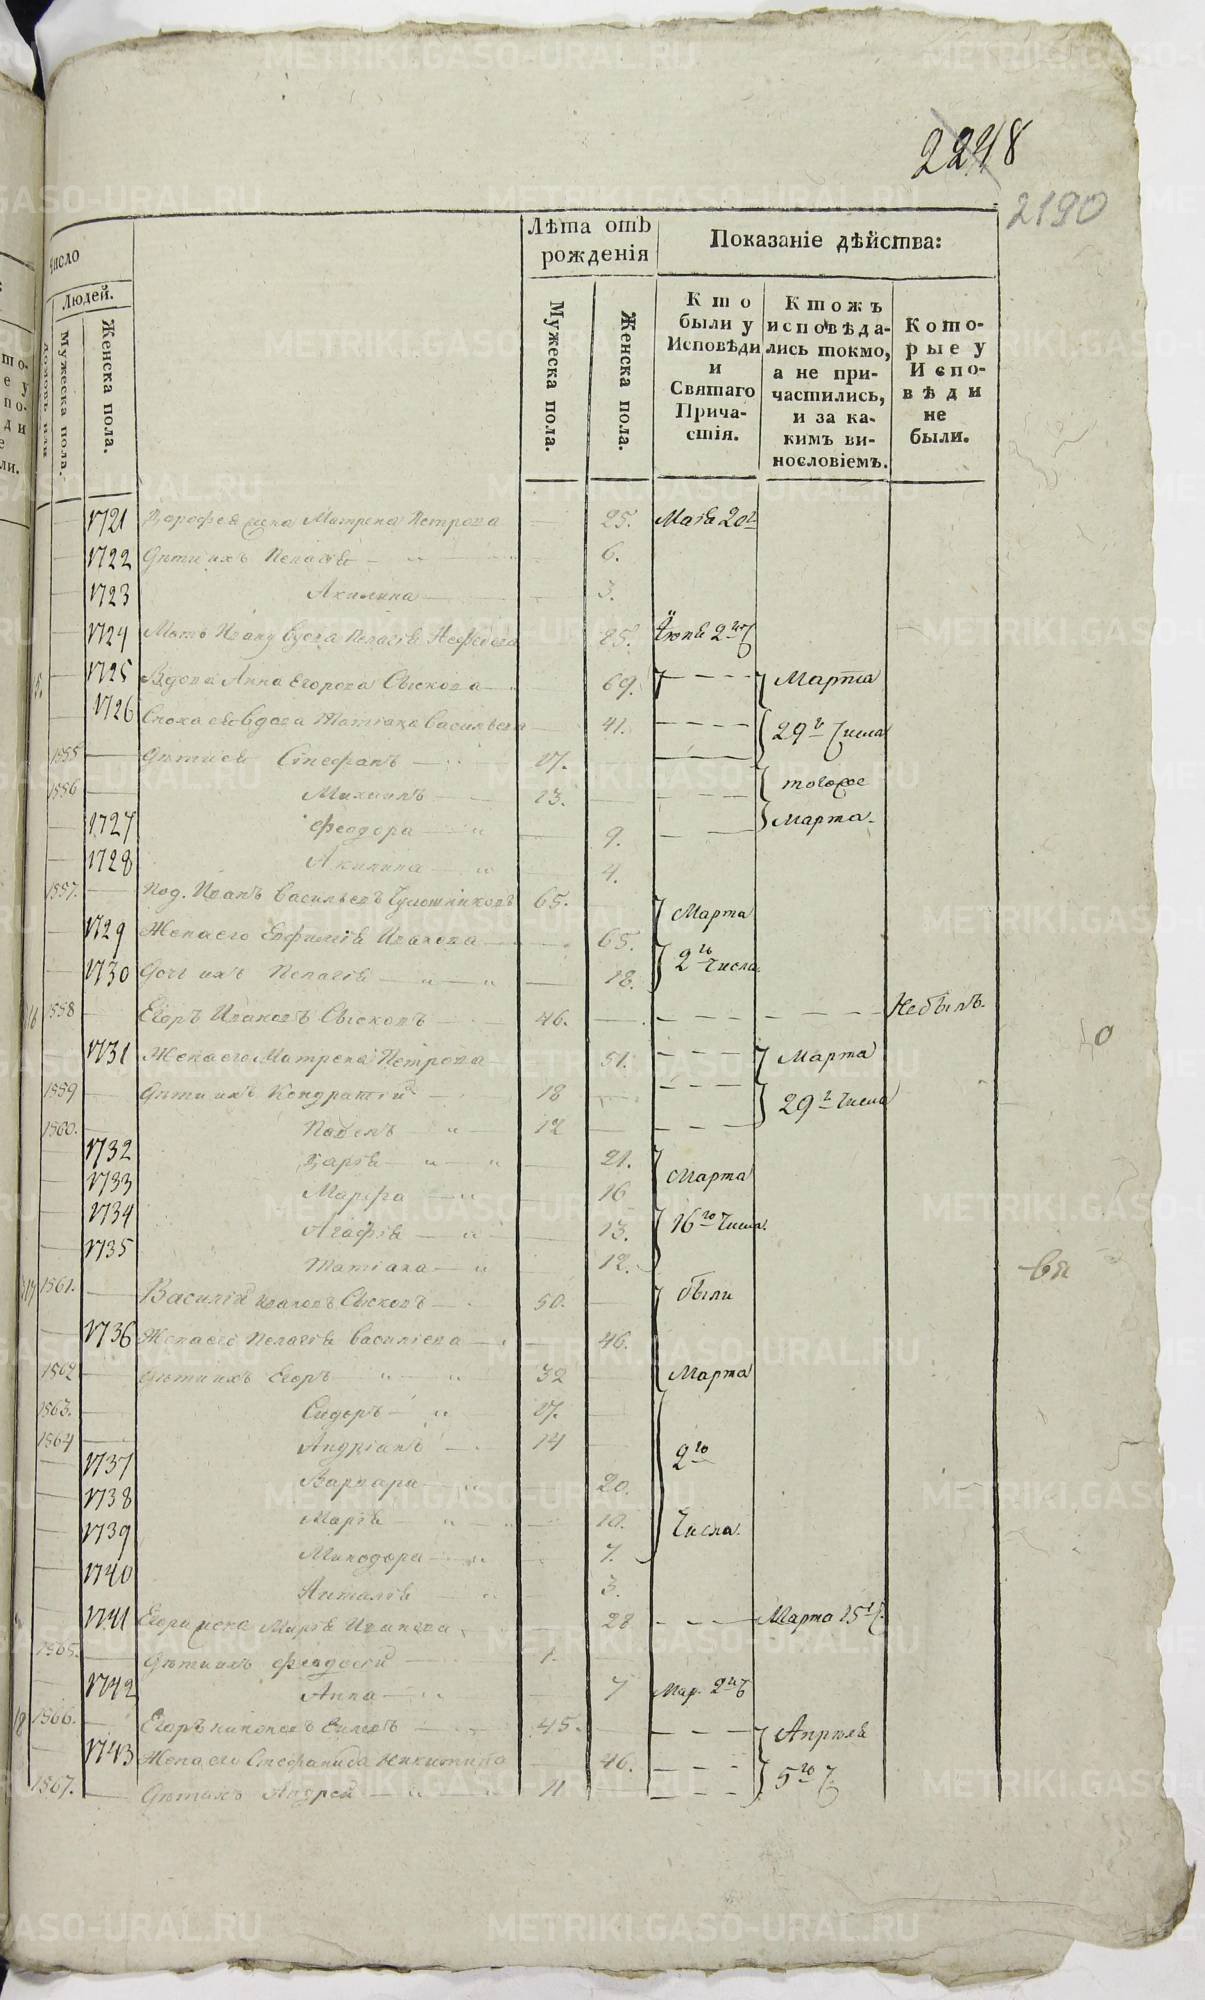 2248
2190
Число
Людей.
Мужеска пола.
Женска пола.
Лѣта отъ рожденія
Мужеска пола.
Женска пола.
Показаніе дѣйства:
Кто были у Исповѣди и Святаго Причастія.
Ктожъ исповѣдались токмо, а не причастились, и за какимъ винословіемъ.
Которые у Исповѣди не были.
1721 Дорофея жена Матрена Петрова 25. Маія 20
1722 Дѣти ихъ Пелагія 6.
1723 Акилина 3.
1724 Мать Ивану вдова Пелагія Нефедова 85. Іюня 2
1725 Вдова Анна Егорова Сыскова 69. Марта
1726 Сноха ея вдова Татіана Васильева 41. 29 Числа
1855 Дѣти ея Стефанъ 17.
1856 Михаилъ 13. тогоже
1727 Феодора 9. Марта.
1728 Акилина 4.
1857. Под. Иванъ Васильевъ 65. Марта
1729 Жена его Евфимія Иванова 65.
1730 Дочь ихъ Пелагія 18. 2го Числа
1858 Егоръ Ивановъ Сысковъ 46. Небылъ.
1731 Жена его Матрена Петрова 51. Марта
1859 Дѣти ихъ Кондратій 18 29 Числа
1860. Павелъ 12
1732 Дарія 21. Марта
1733 Марфа 16
1734 Агафія 13. 16го Числа.
1735 Татіана 12.
1861. Василій Ивановъ Сысковъ 50. были
1736 Жена его Пелагія Василіева 46.
1862 Дѣти ихъ Егоръ 32 Марта
1863. Сидоръ 17.
1864 Андріанъ 14 2го
1737 Варвара 20.
1738 Марія 10. Числа.
1739 Минодора 7.
1740 Наталія 3.
1741 Егора жена Марія Иванова 28 Марта 15
1865. Дѣти ихъ Феодосій 1.
1742 Анна 7 Мар. 2
1866. Егоръ 45. Апрѣля
1743 Жена его Стефанида Никитина 46. 5го
1867. Дѣти ихъ Андрей 11
METRIKI.GASO-URAL.RU